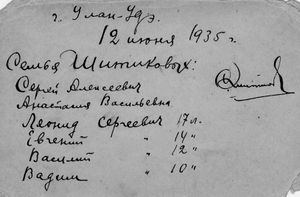 г. Улан-Удэ
12 июня 1935 г.
Семья Шитиковых:
Сергей Алексеевич
Анастасия Васильевна
Леонид Сергеевич 17 л.
Евгений " 14 "
Василий " 12 "
Вадим " 10 "